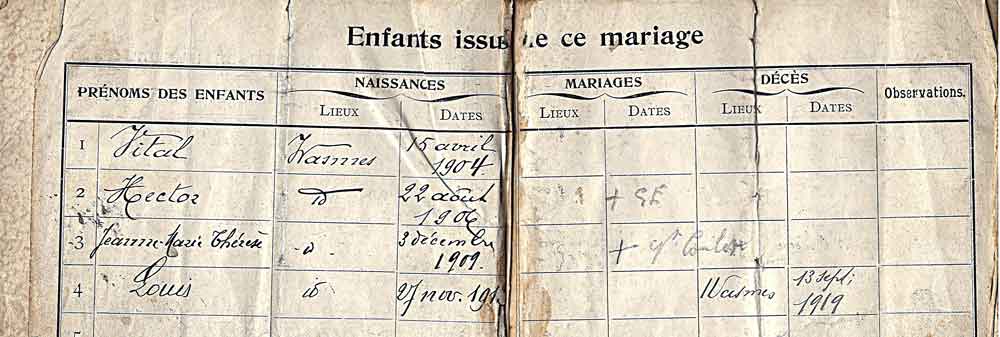 Enfants issus de ce mariage
PRÉNOMS DES ENFANTS NAISSANCES MARIAGES DÉCÈS Observations.
LIEUX DATES LIEUX DATES LIEUX DATES
1 Vital Wasmes 15 avril 1904
2 Hector id 22 août 1906
3 Jeanne-Marie Thérèse id 3 décembre 1909.
4 Louis id 27 nov. Wasmes 13 sept; 1919